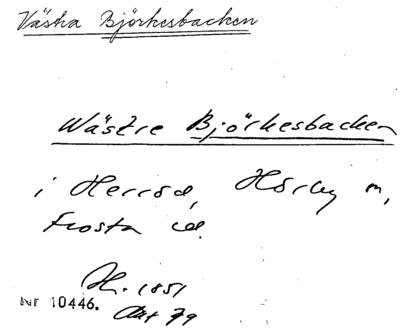 Västra Björkesbacken
Wästre Björkesbacken
i Herrod, Hörby s,
Frosta hd.
H. 1851
Nr 10446.
Akt 79